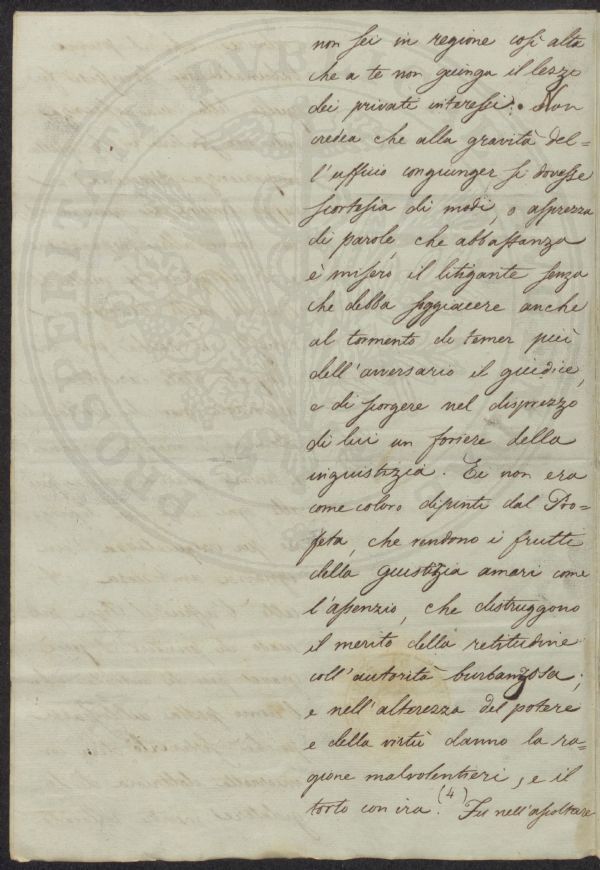 non sei in regione così alta
che a te non giunga il lezzo
dei privati interessi. Non
credea che alla gravità del=
l'ufficio congiunger si dovesse
scortesia di modi, o asprezza
di parole, che abbastanza
è misero il litigante senza
che debba soggiacere anche
al tormento di temer più
dell'avversario il giudice,
e di scorgere nel disprezzo
di lui un foriere della
ingiustizia. Ei non era
come coloro dipinti dal Pro=
feta, che rendono i frutti
della giustizia amari come
l'assenzio, che distruggono
il merito della rettitudine
coll'autorità burbanzosa,
e nell'alterezza del potere
e della virtù danno la ra=
gione malvolentieri, e il
torto con ira. (4) Fu nell'ascoltare
PROSPERITATI PVB